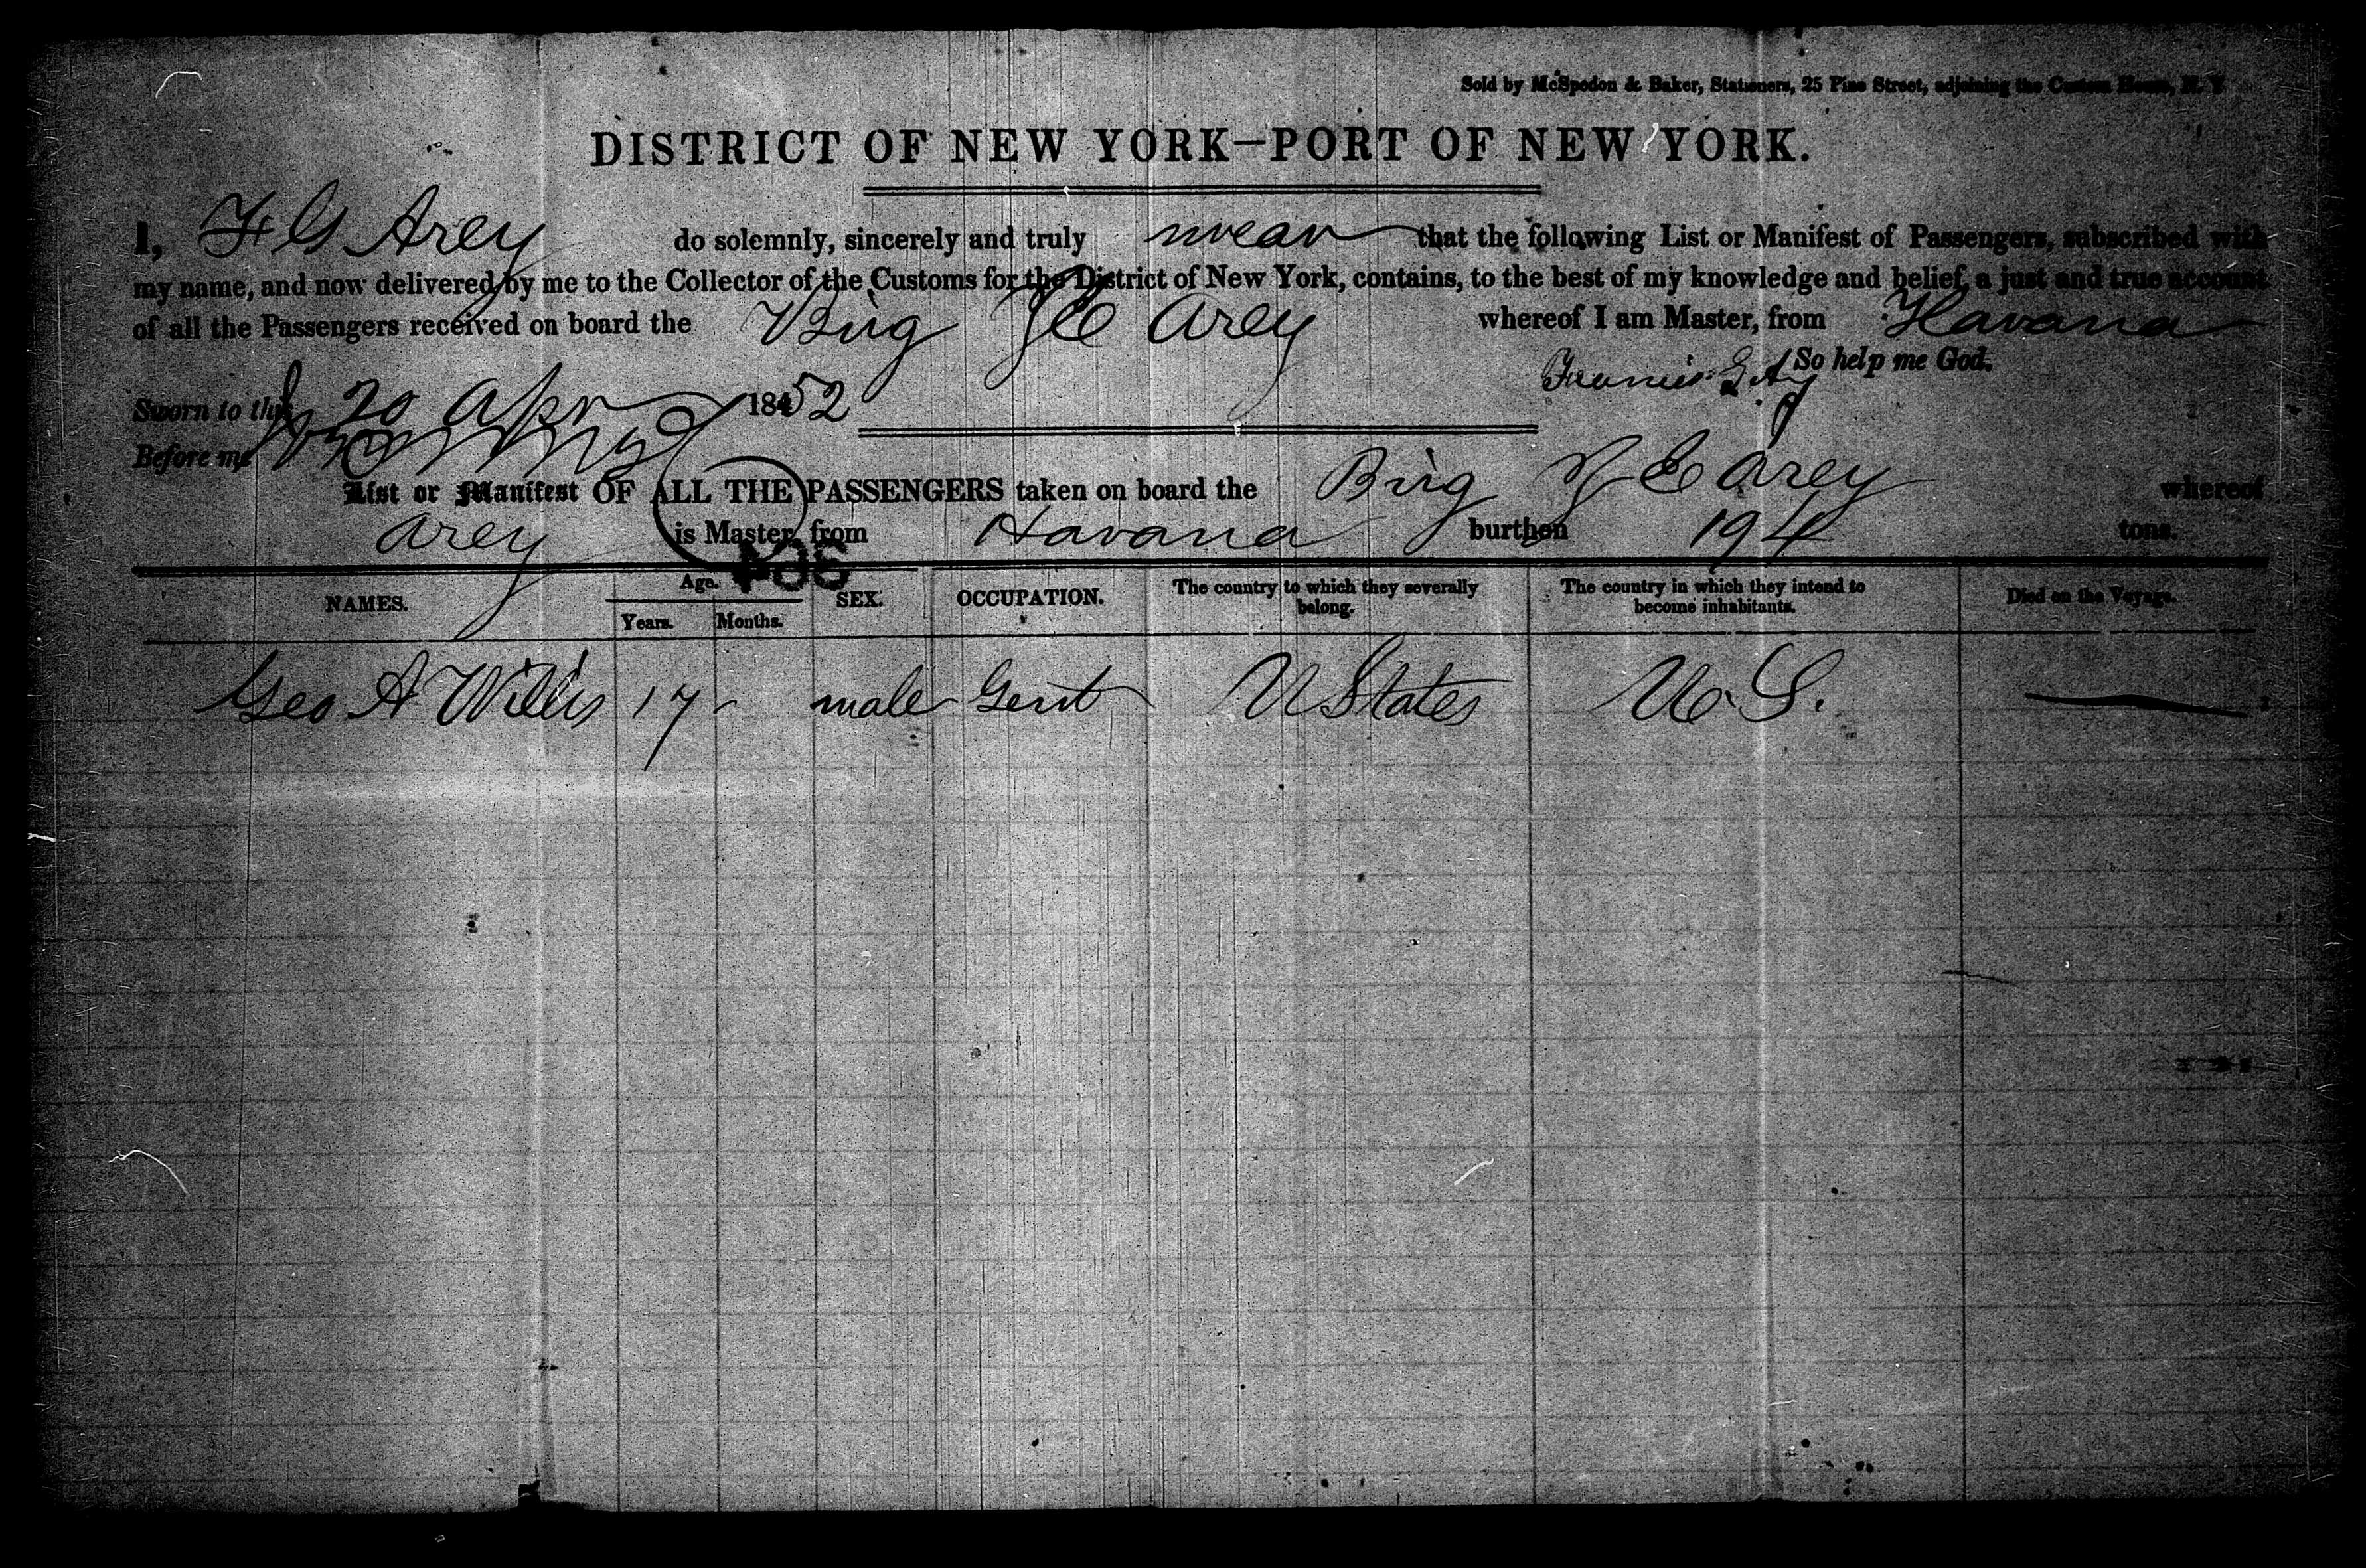 Sold by McSpedon & Baker, Stationers, 25 Pine Street, adjoining the Custom House, N. Y.
DISTRICT OF NEW YORK—PORT OF NEW YORK.
I, F G Arey do solemnly, sincerely and truly swear that the following List or Manifest of Passengers, subscribed with
my name, and now delivered by me to the Collector of the Customs for the District of New York, contains, to the best of my knowledge and belief, a just and true account
of all the Passengers received on board the Brig Arey whereof I am Master, from Havana
Francis G So help me God.
Sworn to this 20 Apr 1852
Before me
List or Manifest OF ALL THE PASSENGERS taken on board the Brig Arey whereof
Arey is Master, from Havana burthen 194 tons.
NAMES. Age. Years. Months. SEX. OCCUPATION. The country to which they severally belong. The country in which they intend to become inhabitants. Died on the Voyage.
Geo A Willis 17 male Gent U States U S.